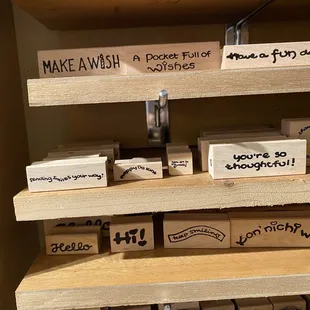 MAKE A WISH
A Pocket Full of
Wishes
Have a fun d
sending wishes your way!
you're so
thoughtful!
Hello
Hello
Hi!
keep smiling
Kon'nichiw